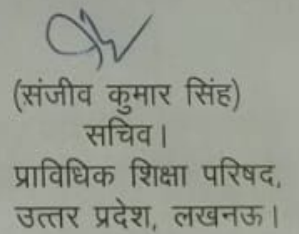 (संजीव कुमार सिंह)
सचिव।
प्राविधिक शिक्षा परिषद,
उत्तर प्रदेश, लखनऊ।